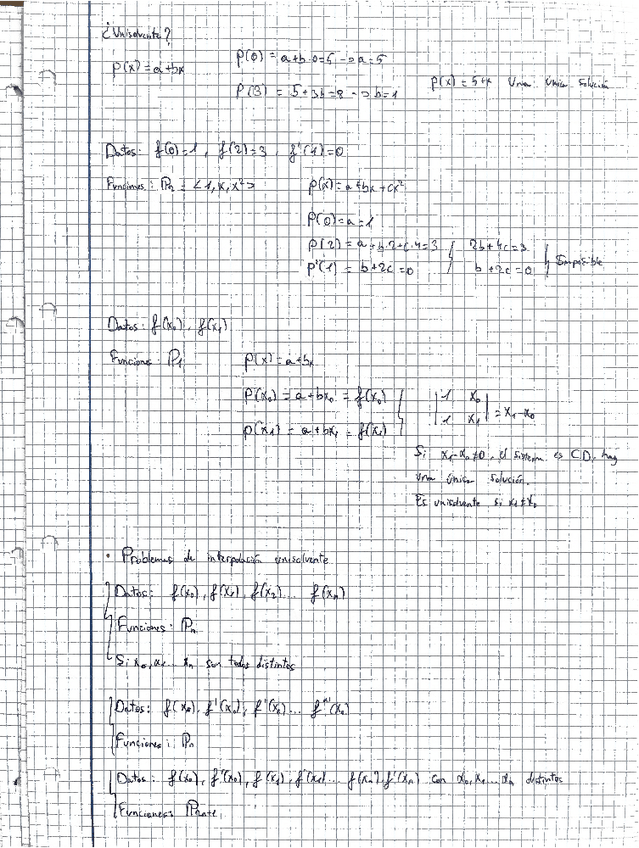 ¿Unisolvente?
p(x) = a+bx    p(0) = a+b·0=5 → a=5
p(3) = 5+3b=8 → b=1    p(x) = 5+x Una única solución
Datos: f(0)=1, f(2)=3, f'(1)=0
Funciones: P₂ = <1, x, x²>    p(x) = a+bx+cx²
p(0)=a=1
p(2) = a+b·2+c·4=3 } 2b+4c=3 } Imposible
p'(1) = b+2c=0 } b+2c=0 }
Datos: f(x₀), f(x₁)
Funciones: P₁    p(x) = a+bx
p(x₀) = a+bx₀ = f(x₀) } | 1 x₀ |
p(x₁) = a+bx₁ = f(x₁) } | 1 x₁ | = x₁-x₀
Si x₁-x₀≠0, el sistema es CD, hay
una única solución.
Es unisolvente si x₁≠x₀
• Problemas de interpolación unisolvente
Datos: f(x₀), f(x₁), f(x₂)... f(xₙ)
Funciones: Pₙ
Si x₀, x₁... xₙ son todos distintos
Datos: f(x₀), f'(x₀), f''(x₀)... fⁿ⁾(x₀)
Funciones: Pₙ
Datos: f(x₀), f'(x₀), f(x₁), f'(x₁)... f(xₙ), f'(xₙ) con x₀, x₁... xₙ distintos
Funciones: P₂ₙ₊₁